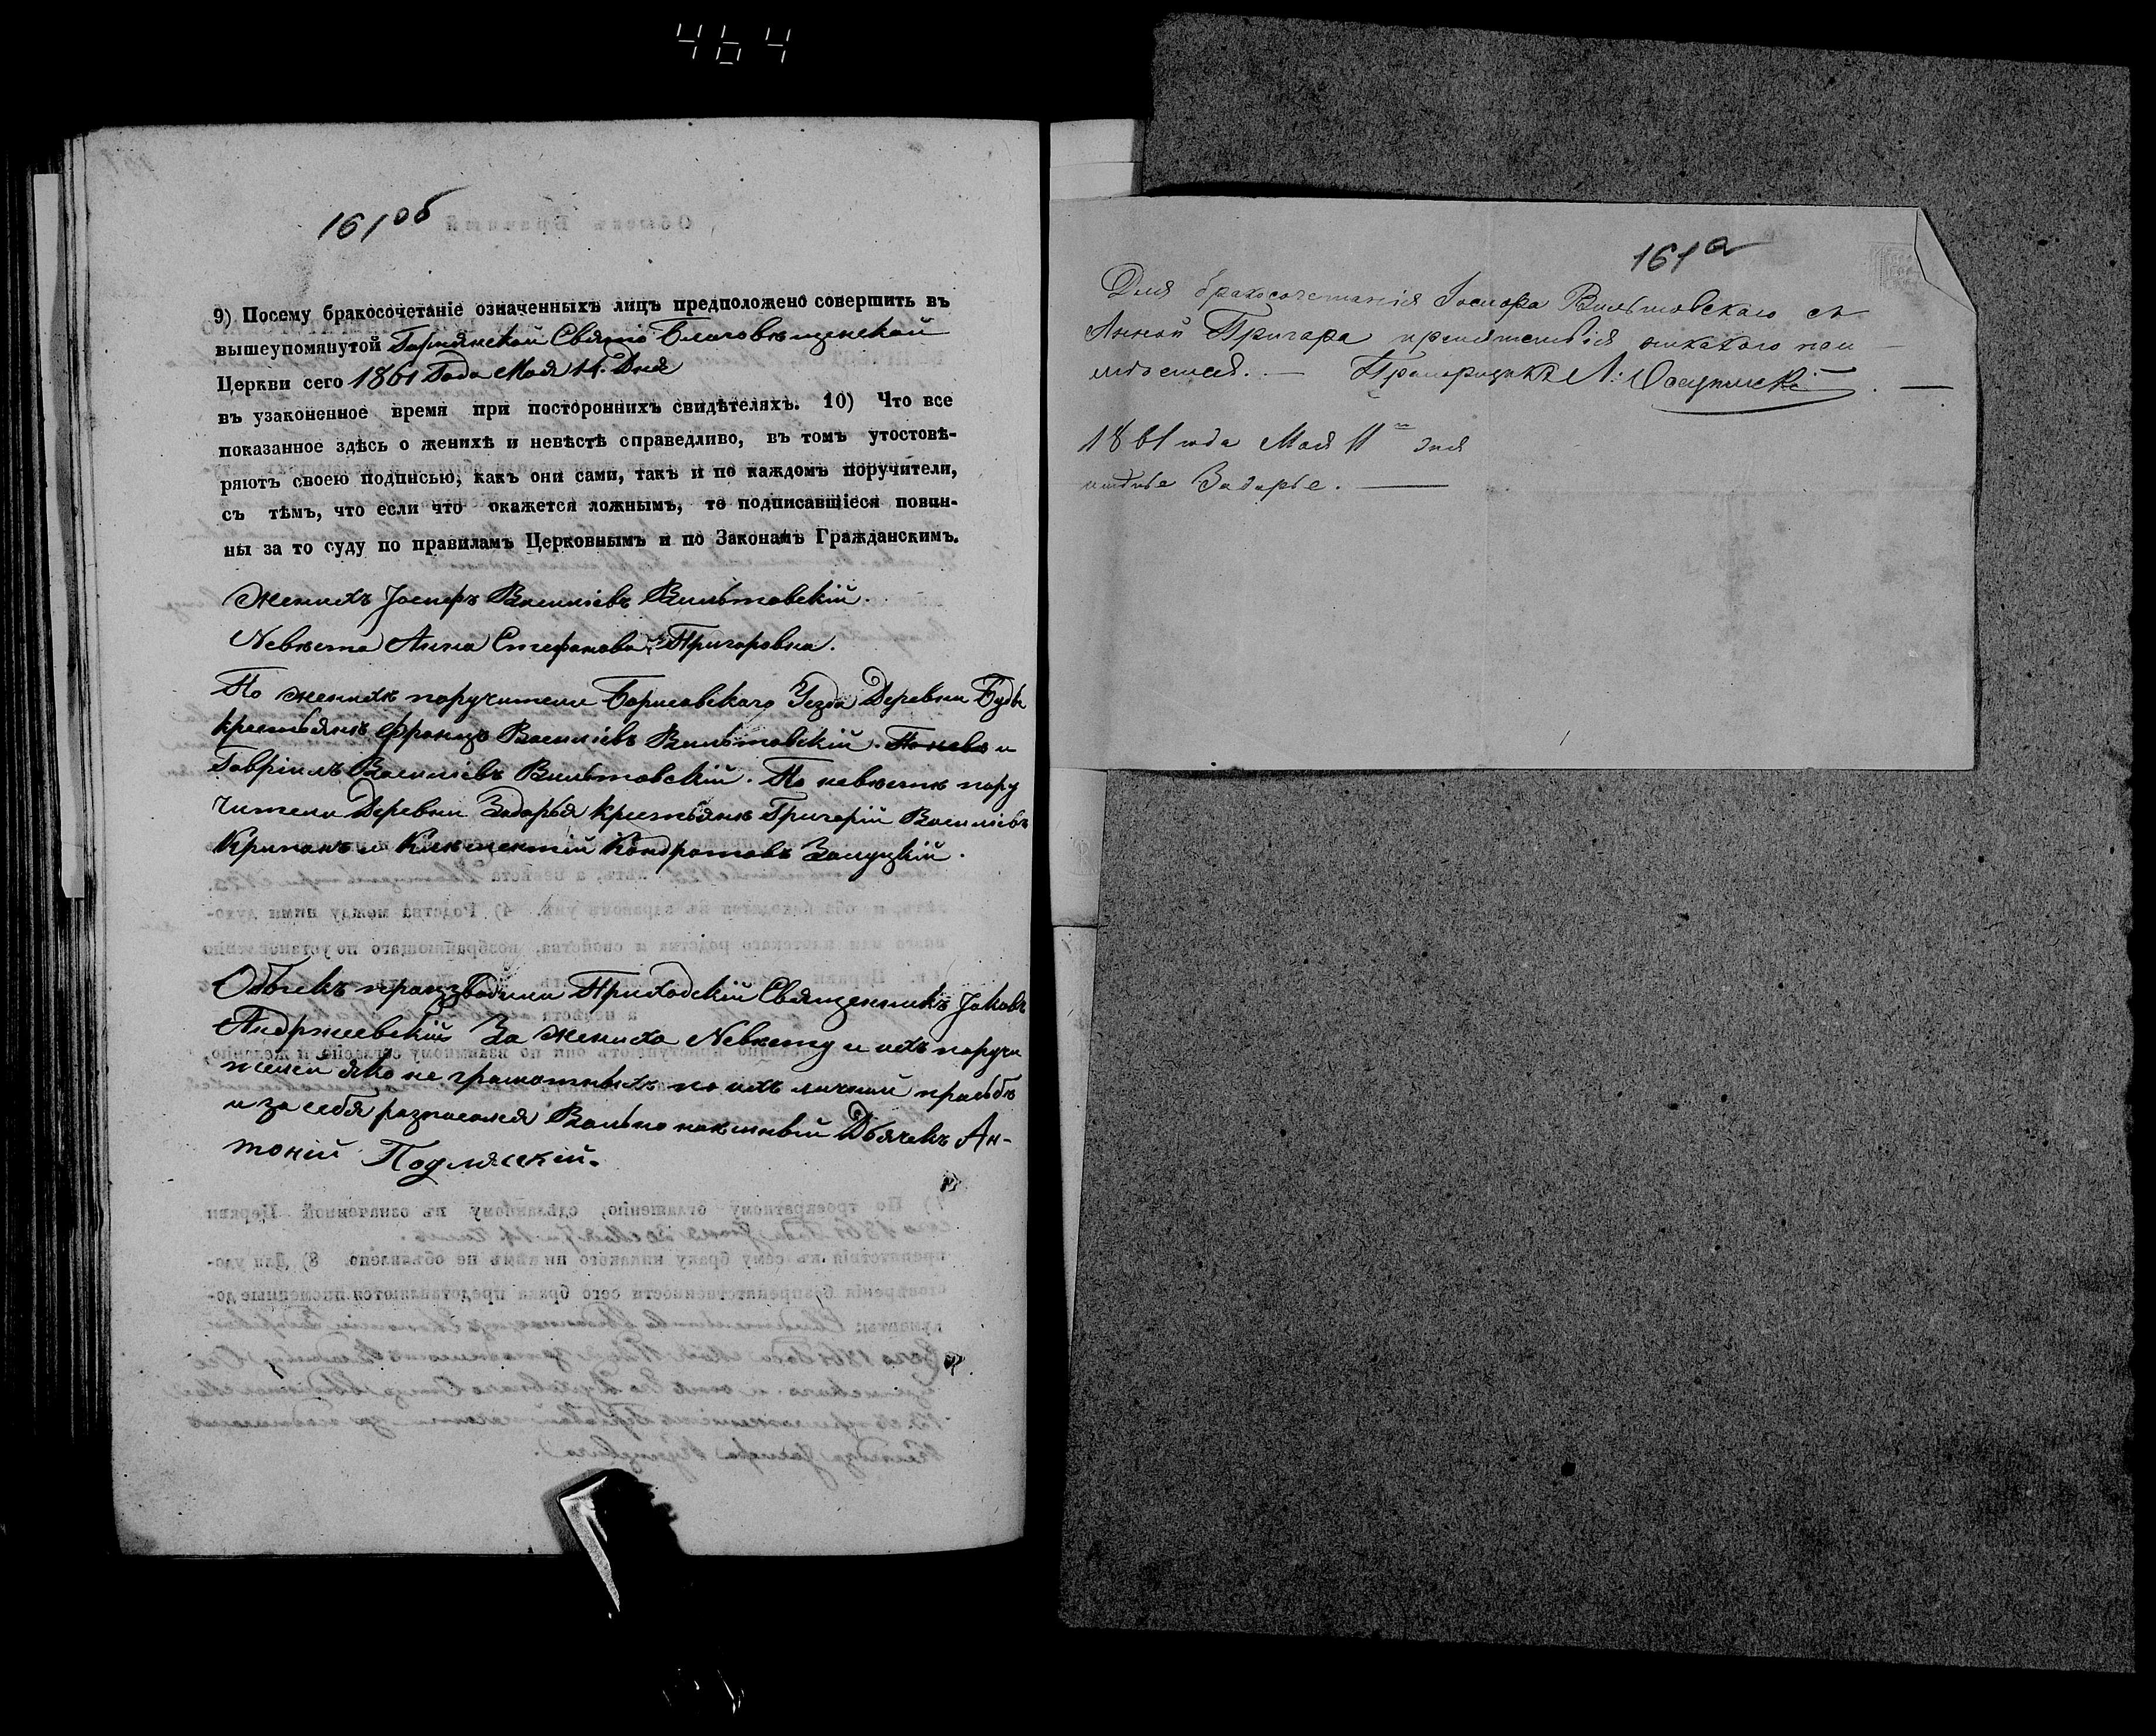 464
161об
9) Посему бракосочетаніе означенныхъ лицъ предположено совершить въ
вышеупомянутой Гаръянской Свято Благовѣщенской
Церкви сего 1861 Года Мая 14. Дня
въ узаконенное время при постороннихъ свидѣтеляхъ. 10) Что все
показанное здѣсь о женихѣ и невѣстѣ справедливо, въ томъ утостовѣ-
ряютъ своею подписью, какъ они сами, такъ и по каждомъ поручители,
съ тѣмъ, что если что окажется ложнымъ, то подписавшіеся повин-
ны за то суду по правиламъ Церковнымъ и по Законамъ Гражданскимъ.
Женихъ Іосифъ Василіевъ Вильтовскій.
Невѣста Анна Стефанова Григоровна.
По женихѣ поручители Борисовскаго Уезда Деревни Буды
крестьянъ Францъ Василіевъ Вильтовскій. По невѣ и
Гавріилъ Василіевъ Вильтовскій. По невѣстѣ пору
чители Деревни Задорья крестьянъ Григорій Василіевъ
и Климентій Кондратовъ Залуцкій.
Обыскъ производили Приходскій Священникъ Іаковъ
Андржеевскій За жениха Невѣсту и ихъ поручи
телей яко не грамотныхъ по ихъ личной прозьбѣ
и за себя росписался Вольно наемный Дьячекъ Ан-
тоній Подляскій.
161а
Для бракосочетанія Іосифа Вильтовскаго съ
Анной Григора препятствія никакого неи
мѣется. — Прапорщикъ Л.
1861 года Мая 11 дня
имѣніе Задорье. —